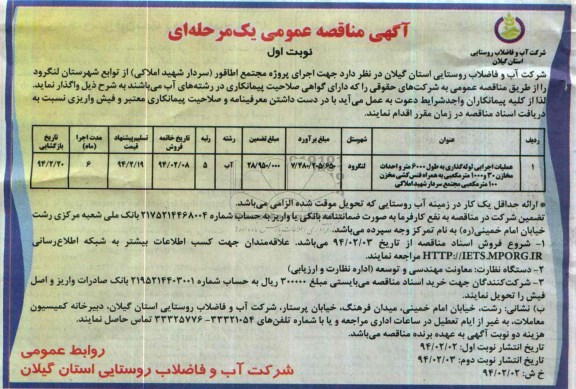 شرکت آب و فاضلاب روستایی
استان گیلان
آگهی مناقصه عمومی یک‌مرحله‌ای
نوبت اول
شرکت آب و فاضلاب روستایی استان گیلان در نظر دارد جهت اجرای پروژه مجتمع اطاقور (سردار شهید املاکی) از توابع شهرستان لنگرود
را از طریق مناقصه عمومی به شرکت‌های حقوقی را که دارای گواهی صلاحیت پیمانکاری در رشته‌های آب می‌باشند به شرح ذیل واگذار نماید.
لذا از کلیه پیمانکاران واجدشرایط دعوت به عمل می‌آید با در دست داشتن معرفینامه و صلاحیت پیمانکاری معتبر و فیش واریزی نسبت به
دریافت اسناد مناقصه در زمان مقرر اقدام نمایند.
ردیف عنوان شهرستان مبلغ برآورد مبلغ تضمین رشته رتبه تاریخ خاتمه فروش تسلیم پیشنهاد مدت اجرا (ماه) تاریخ بازگشایی
۱ عملیات اجرایی لوله‌گذاری به طول ۶۰۰۰ متر و احداث مخازن ۳۰ و ۱۰۰۰ متر مکعبی به همراه فنس‌کشی مخزن ۱۰۰ مترمکعبی مجتمع سردار شهید املاکی لنگرود ۷/۲۸۰/۲۰۵/۶۵۰ ۲۸/۹۵۰/۰۰۰ آب ۵ ۹۴/۰۲/۰۸ ۹۴/۲/۱۹ ۶ ۹۴/۲/۲۰
* ارائه حداقل یک کار در زمینه آب روستایی که تحویل موقت شده الزامی می‌باشد.
تضمین شرکت در مناقصه به نفع کارفرما به صورت ضمانتنامه بانکی یا واریز به حساب شماره ۲۱۷۵۲۱۴۴۶۸۰۰۴ بانک ملی شعبه مرکزی رشت
خیابان امام خمینی(ره) به نام تمرکز وجه سپرده می‌باشد.
۱- شروع فروش اسناد مناقصه از تاریخ ۹۴/۰۲/۰۳ می‌باشد. علاقه‌مندان جهت کسب اطلاعات بیشتر به شبکه اطلاع‌رسانی
HTTP://IETS.MPORG.IR مراجعه نمایند.
۲- دستگاه نظارت: معاونت مهندسی و توسعه (اداره نظارت و ارزیابی)
۳- شرکت‌کنندگان جهت خرید اسناد مناقصه می‌بایستی مبلغ ۳۰۰۰۰۰ ریال به حساب شماره ۲۱۹۵۲۱۴۴۰۳۰۰۱ بانک صادرات واریز و اصل
فیش را تحویل نمایند.
ب) نشانی: رشت، خیابان امام خمینی، میدان فرهنگ، خیابان پرستار، شرکت آب و فاضلاب روستایی استان گیلان، دبیرخانه کمیسیون
معاملات، به غیر از ایام تعطیل در ساعات اداری مراجعه و یا با شماره تلفن‌های ۳۳۳۲۱۰۵۴- ۳۳۳۲۵۷۷۶ تماس حاصل نمایند.
هزینه دو نوبت آگهی به عهده برنده مناقصه می‌باشد.
تاریخ انتشار نوبت اول: ۹۴/۰۲/۰۲
تاریخ انتشار نوبت دوم: ۹۴/۰۲/۰۳
خ ش: ۹۴/۰۲/۰۲
روابط عمومی
شرکت آب و فاضلاب روستایی استان گیلان